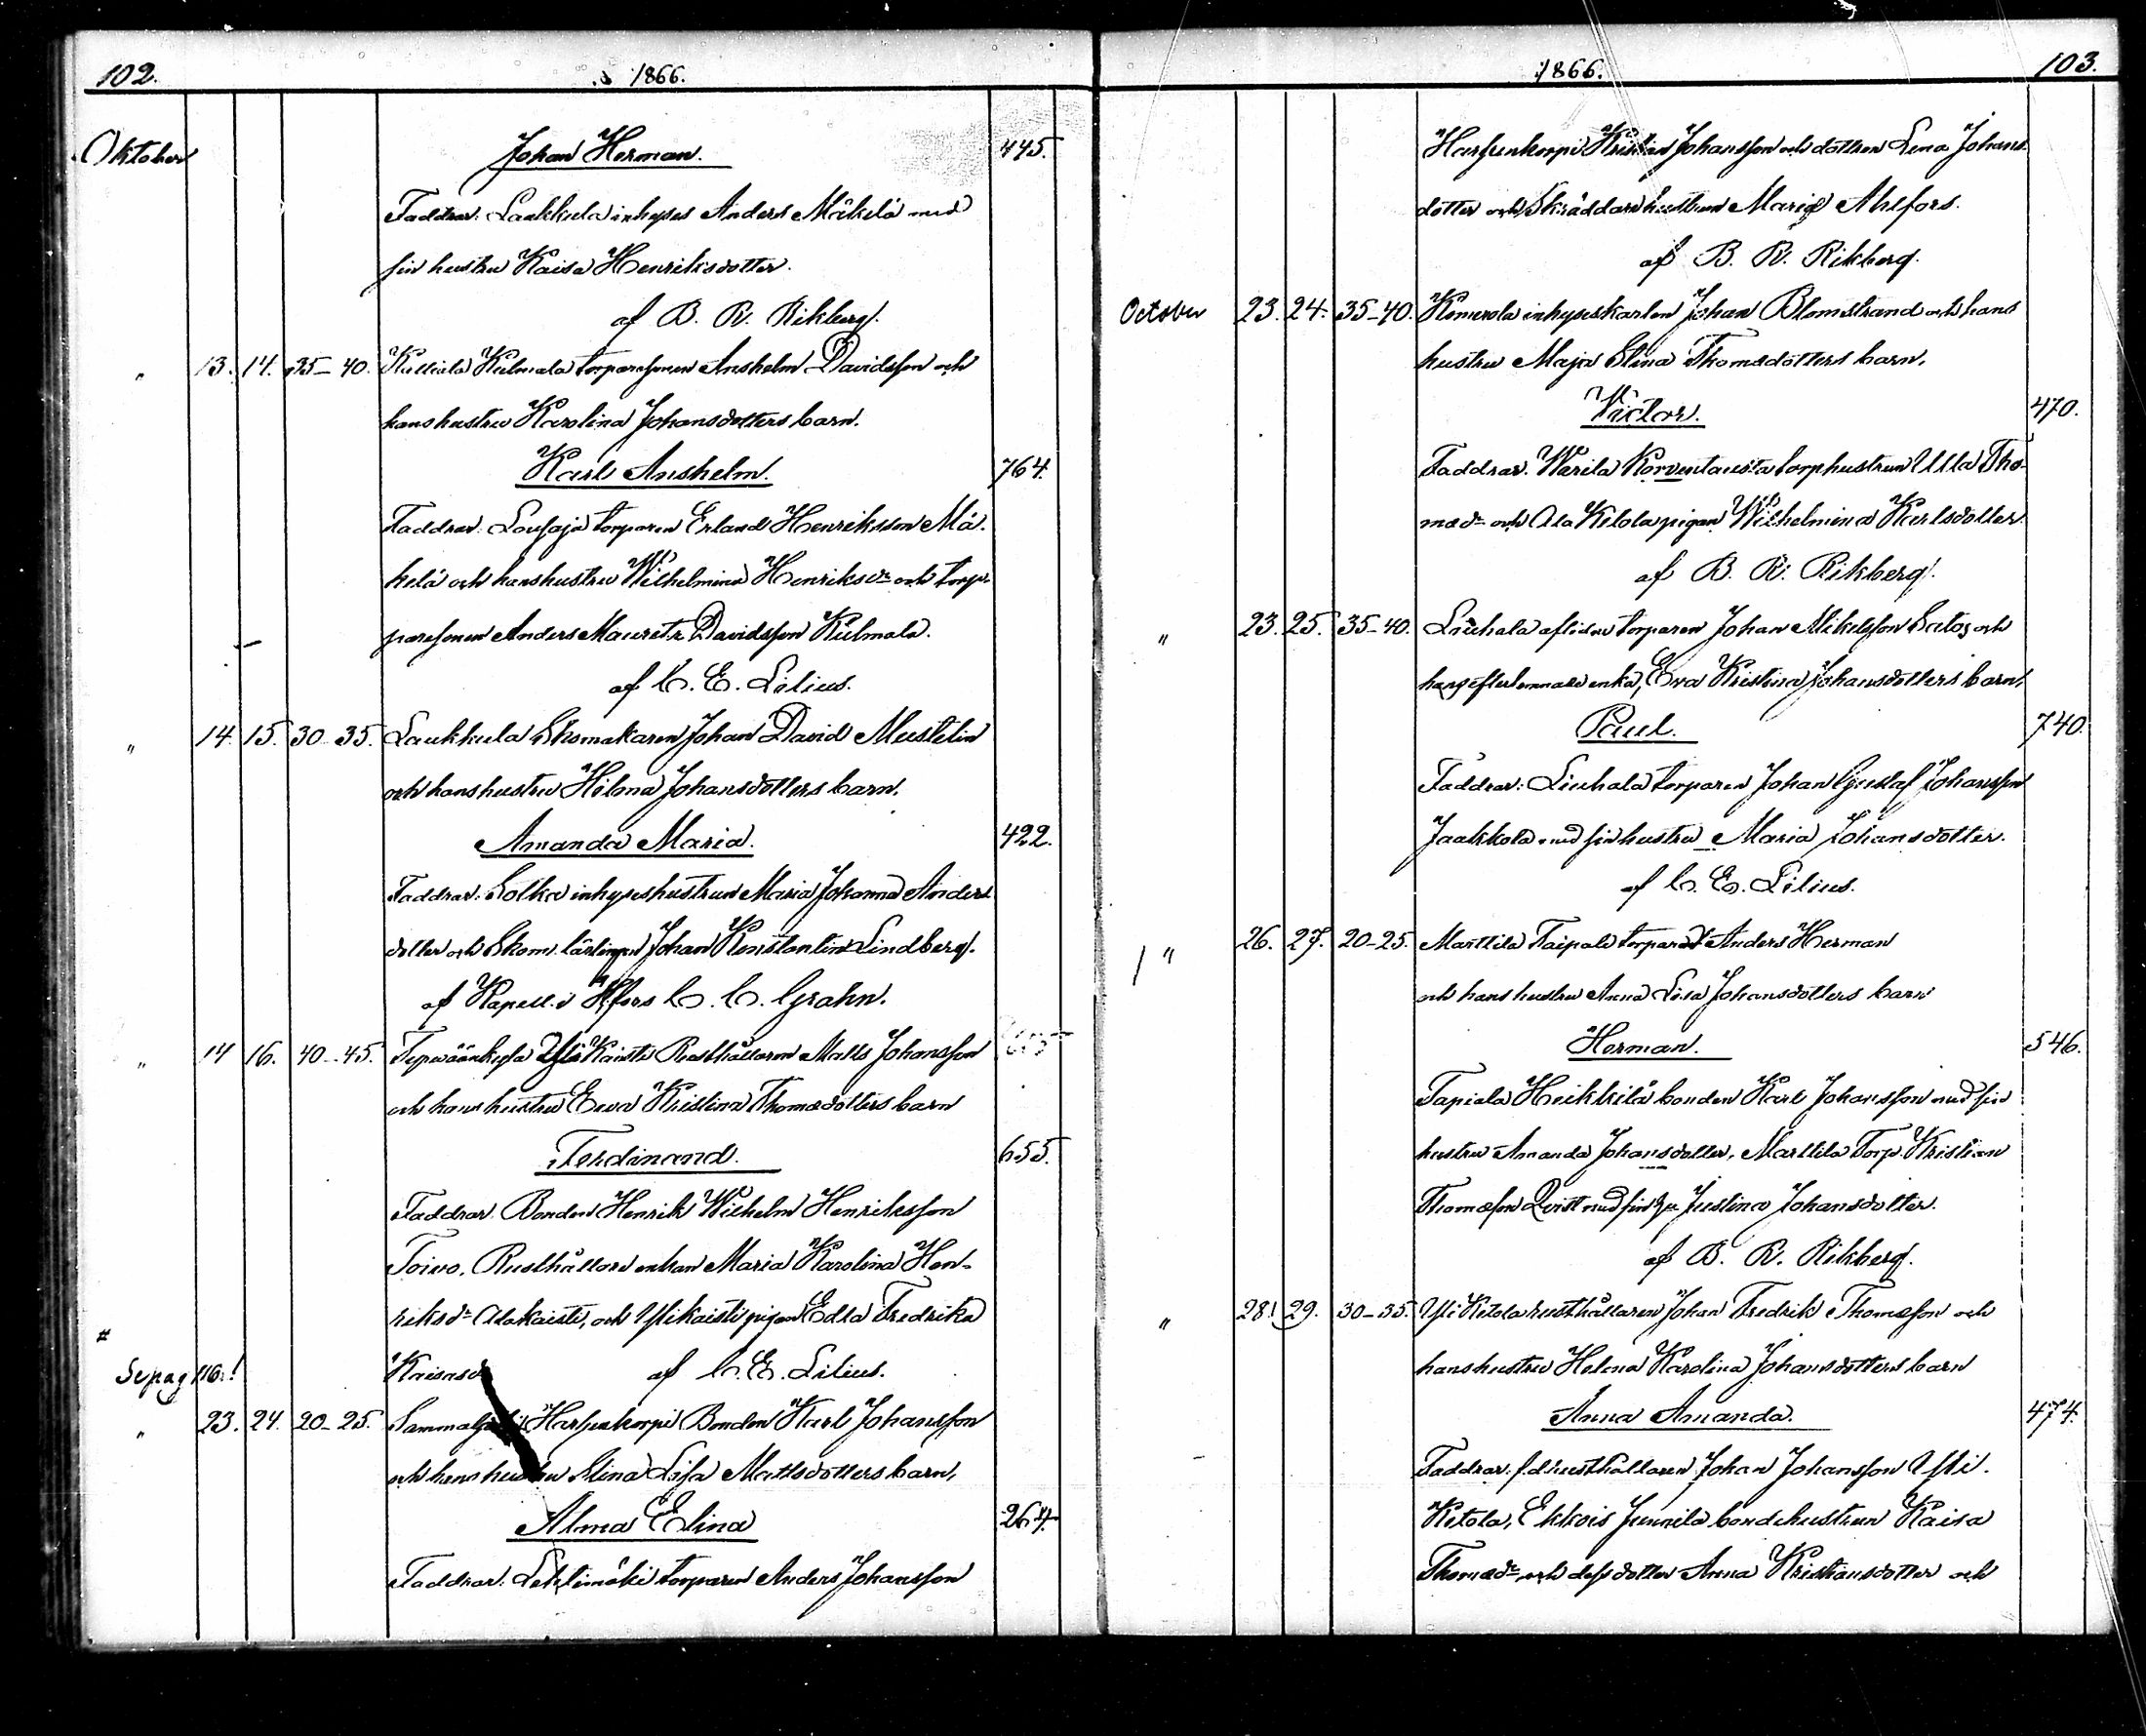 102. 1866.
Oktober Johan Herman. 445.
Faddrar: Laukkula inhyses Anders Mäkelä med
sin hustru Kaisa Henriksdotter.
af B. R. Rikberg.
" 13. 14. 35-40. Kulmala torparesonen Anshelm Davidsson och
hans hustru Karolina Johansdotters barn.
Karl Anshelm. 764.
Faddrar: torparen Erland Henriksson Mä-
kelä och hans hustru Wilhelmina Henriksdr och torp-
paresonen Anders Mauritz Davidsson Kulmala.
af C. E. Lilius.
" 14. 15. 30-35. Laukkula Skomakaren Johan David Mustelin
och hans hustru Helena Johansdotters barn.
Amanda Maria. 422.
Faddrar: Solka inhyseshustrun Maria Johanna Anders
dotter och Skom. lärlingen Johan Konstantin Lindberg.
af Kapell. i Hfors C. C. Grahn.
" 14 16. 40-45. Yli Kaisti Rusthållaren Matts Johansson
och hans hustru Eva Kristina Thomasdotters barn
Ferdinand. 655.
Faddrar. Bonden Henrik Wilhelm Henriksson
Toivo, Rusthållare enkan Maria Karolina Hen-
riksdr Alakaisti, och Ylikaisti pigan Edla Fredrika
#
Se pag 116.! Kaisasdr af C. E. Lilius.
" 23. 24. 20-25. Harjunkorpi Bonden Karl Johansson
och hans hustru Elina Lisa Mattsdotters barn,
Alma Elina 264.
Faddrar: Lehtimäki torparen Anders Johansson
1866. 103.
Harjunkorpi Kristian Johansson och dottren Lena Johans
dotter och Skräddarehustrun Maria Ahlfors.
af B. R. Rikberg.
October 23. 24. 35-40. inhyseskarlen Johan Blomstrand och hans
hustru Maja Stina Thomasdotters barn.
Victor. 470.
Faddrar. Warila Korventausta torphustrun Ulla Tho-
masdr och Ala Ketola pigan Wilhelmina Karlsdotter.
af B. R. Rikberg.
" 23. 25. 35-40. Liuhala aflidne torparen Johan Mikelsson Sato, och
hans efterlemnade enka, Eva Kristina Johansdotters barn,
Paul. 740.
Faddrar: Liuhala torparen Johan Gustaf Johansson
Jaakkola med sin hustru Maria Johansdotter.
af C. E. Lilius.
" 26. 27. 20-25. Marttila Taipale torparen Anders Herman
och hans hustru Anna Lisa Johansdotters barn
Herman. 546.
Tapiala Heikkilä bonden Karl Johansson med sin
hustru Amanda Johansdotter, Marttila Torp. Kristian
Thomasson Qvist med sin hu Justina Johansdotter.
af B. R. Rikberg.
" 28. 29. 30-35. Yli Ketola rusthållaren Johan Fredrik Thomasson och
hans hustru Helena Karolina Johansdotters barn
Anna Amanda. 474.
Faddrar: f.d. rusthållaren Johan Johansson Yli-
Ketola, Ekkois Junnila bondehustrun Kaisa
Thomasdr och dess dotter Anna Kristiansdotter och